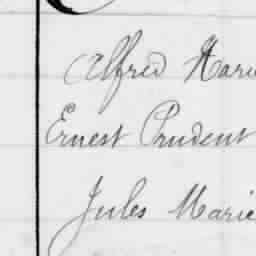 Alfred Marie
Ernest Prudent
Jules Marie